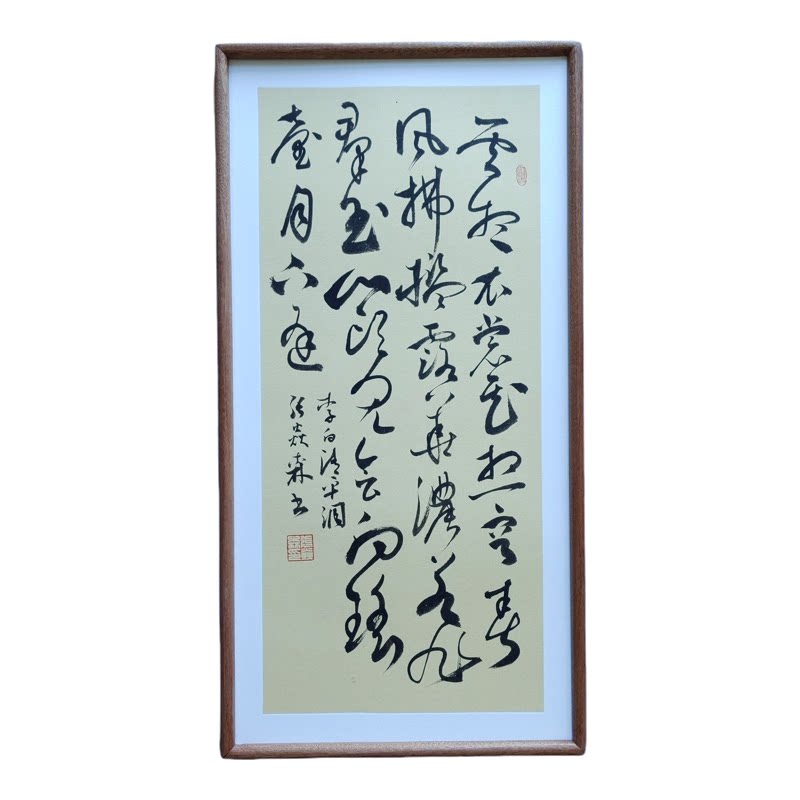 雲想衣裳花想容春
風拂檻露華濃若非
羣玉山頭見會向瑤
臺月下逢
李白清平調
張焱森書